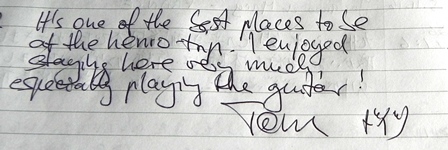 It's one of the best places to be
of the henro trip. I enjoyed
staying here very much!
especially playing the guitar!
Tom